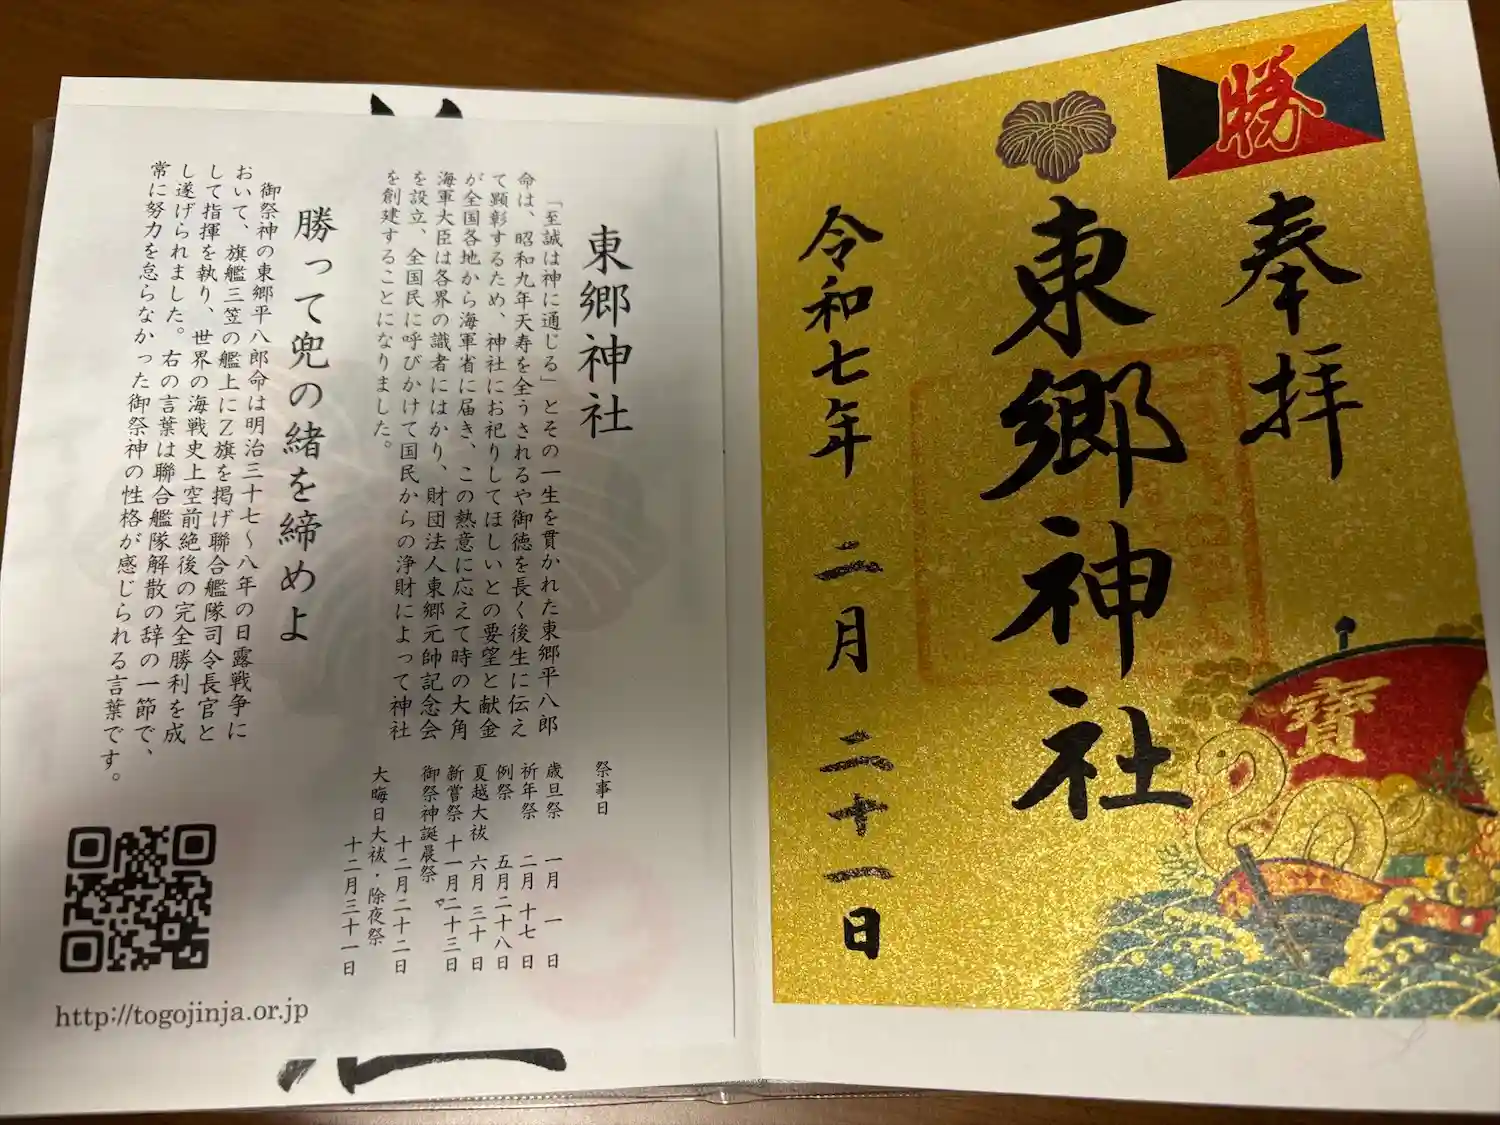 勝
奉拝
東郷神社
令和七年 二月 二十一日
寶
東郷神社
「至誠は神に通じる」とその一生を貫かれた東郷平八郎
命は、昭和九年天寿を全うされるや御徳を長く後生に伝え
て顕彰するため、神社にお祀りしてほしいとの要望と献金
が全国各地から海軍省に届き、この熱意に応えて時の大角
海軍大臣は各界の識者にはかり、財団法人東郷元帥記念会
を設立、全国民に呼びかけて国民からの浄財によって神社
を創建することになりました。
勝って兜の緒を締めよ
御祭神の東郷平八郎命は明治三十七～八年の日露戦争に
おいて、旗艦三笠の艦上にZ旗を掲げ聯合艦隊司令長官と
して指揮を執り、世界の海戦史上空前絶後の完全勝利を成
し遂げられました。右の言葉は聯合艦隊解散の辞の一節で、
常に努力を怠らなかった御祭神の性格が感じられる言葉です。
祭事日
歳旦祭 一月 一日
祈年祭 二月 十七日
例祭 五月二十八日
夏越大祓 六月 三十日
新嘗祭 十一月二十三日
御祭神誕晨祭 十二月二十二日
大晦日大祓・除夜祭 十二月三十一日
http://togojinja.or.jp